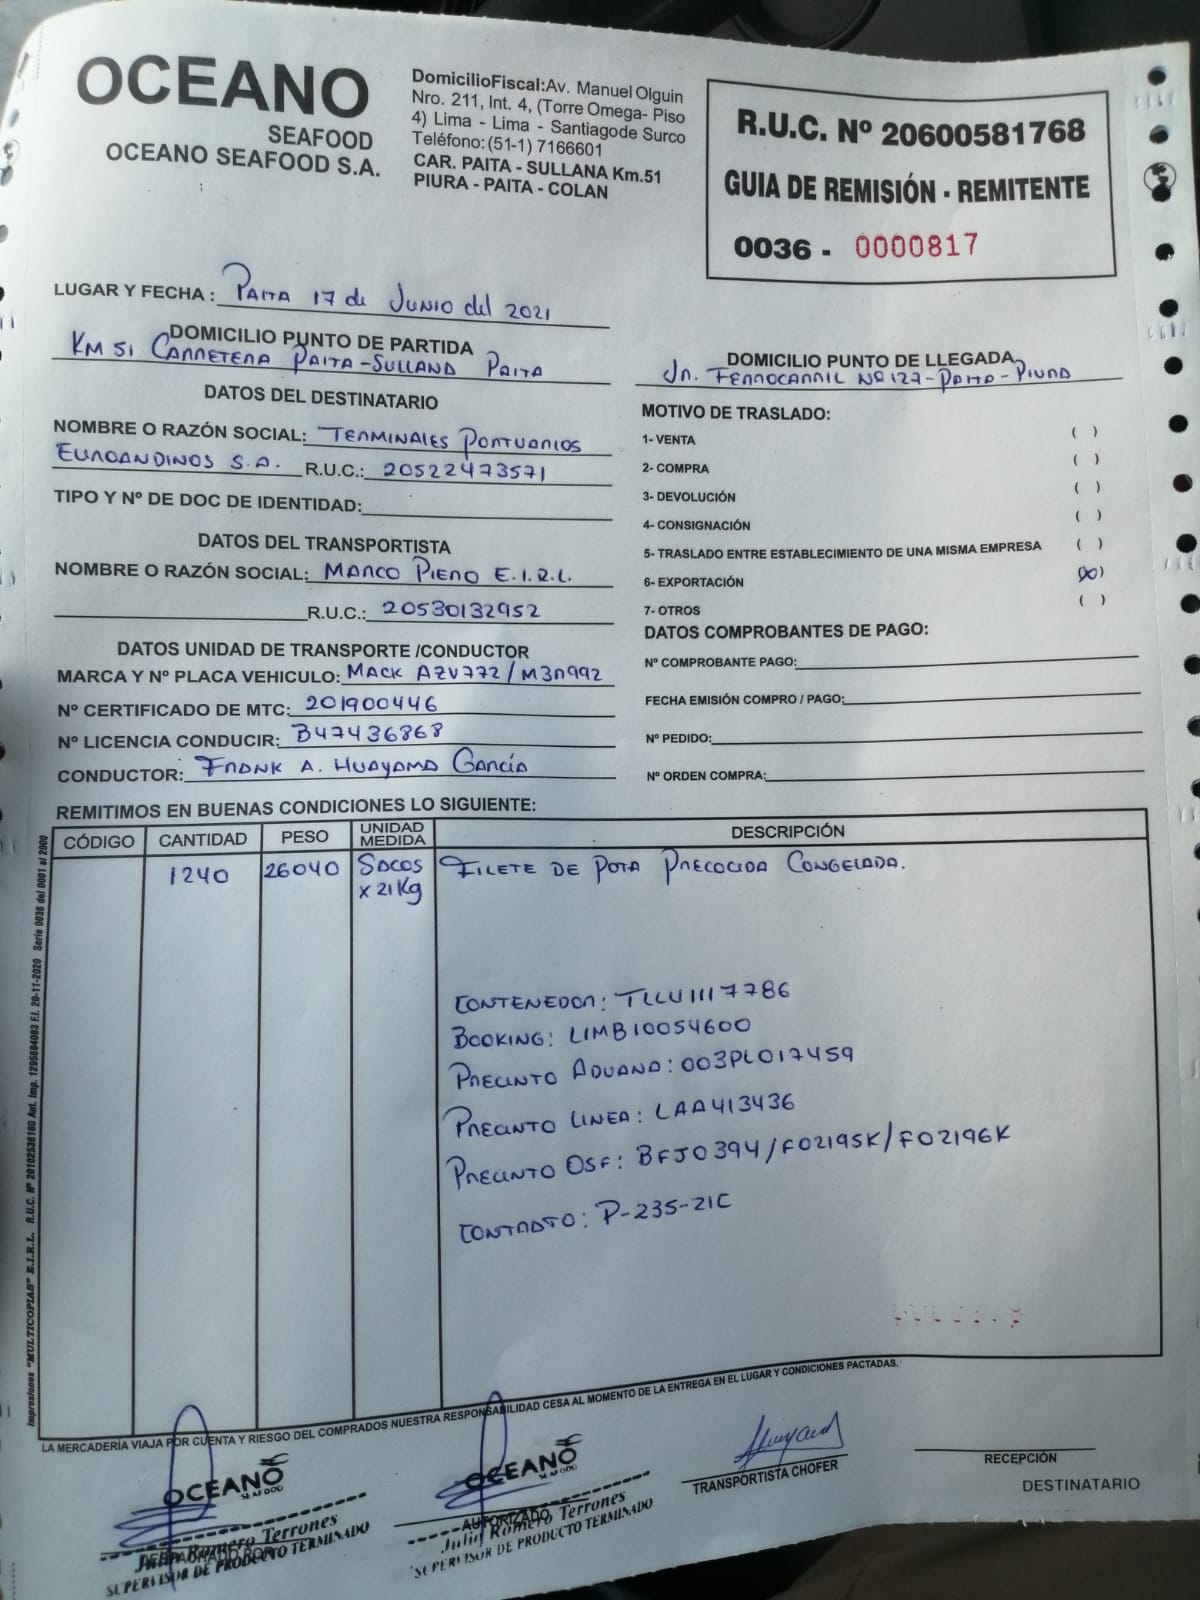 OCEANO
SEAFOOD
OCEANO SEAFOOD S.A.
DomicilioFiscal:Av. Manuel Olguin
Nro. 211, Int. 4, (Torre Omega- Piso
4) Lima - Lima - Santiagode Surco
Teléfono:(51-1) 7166601
CAR. PAITA - SULLANA Km.51
PIURA - PAITA - COLAN
R.U.C. Nº 20600581768
GUIA DE REMISIÓN - REMITENTE
0036 - 0000817
LUGAR Y FECHA : PAITA 17 de JUNIO del 2021
DOMICILIO PUNTO DE PARTIDA
KM 51 CARRETERA PAITA-SULLANA PAITA
DOMICILIO PUNTO DE LLEGADA
Jr. FERROCARRIL Nº 127-PAITA-PIURA
DATOS DEL DESTINATARIO
NOMBRE O RAZÓN SOCIAL: TERMINALES PORTUARIOS
EUROANDINOS S.A. R.U.C.: 20522473571
TIPO Y Nº DE DOC DE IDENTIDAD:
DATOS DEL TRANSPORTISTA
NOMBRE O RAZÓN SOCIAL: MARCO PIERO E.I.R.L.
R.U.C.: 20530132952
DATOS UNIDAD DE TRANSPORTE /CONDUCTOR
MARCA Y Nº PLACA VEHICULO: MACK AZV772/M3A992
Nº CERTIFICADO DE MTC: 201900446
Nº LICENCIA CONDUCIR: B47436868
CONDUCTOR: FRANK A. HUAYAMA GARCÍA
MOTIVO DE TRASLADO:
1- VENTA ( )
2- COMPRA ( )
3- DEVOLUCIÓN ( )
4- CONSIGNACIÓN ( )
5- TRASLADO ENTRE ESTABLECIMIENTO DE UNA MISMA EMPRESA ( )
6- EXPORTACIÓN (X)
7- OTROS ( )
DATOS COMPROBANTES DE PAGO:
Nº COMPROBANTE PAGO:
FECHA EMISIÓN COMPRO / PAGO:
Nº PEDIDO:
Nº ORDEN COMPRA:
REMITIMOS EN BUENAS CONDICIONES LO SIGUIENTE:
CÓDIGO CANTIDAD PESO UNIDAD MEDIDA DESCRIPCIÓN
1240 26040 SACOS x 21Kg FILETE DE POTA PRECOCIDA CONGELADA.
CONTENEDOR: TLLU1117786
BOOKING: LIMB10054600
PRECINTO ADUANA: 003PL017459
PRECINTO LINEA: LAA413436
PRECINTO OSF: BFJ0394/F02195K/F02196K
CONTRATO: P-235-21C
Impresiones "MULTICOPIAS" E.I.R.L. R.U.C. Nº 20102536160 Aut. Imp. 1295694083 F.I. 20-11-2020 Serie 0036 del 0001 al 2000
LA MERCADERÍA VIAJA POR CUENTA Y RIESGO DEL COMPRADOS NUESTRA RESPONSABILIDAD CESA AL MOMENTO DE LA ENTREGA EN EL LUGAR Y CONDICIONES PACTADAS.
OCEANO
SEAFOOD
Julio Romero Terrones
SUPERVISOR DE PRODUCTO TERMINADO
OCEANO
SEAFOOD
AUTORIZADO
Julio Romero Terrones
SUPERVISOR DE PRODUCTO TERMINADO
TRANSPORTISTA CHOFER
RECEPCIÓN
DESTINATARIO